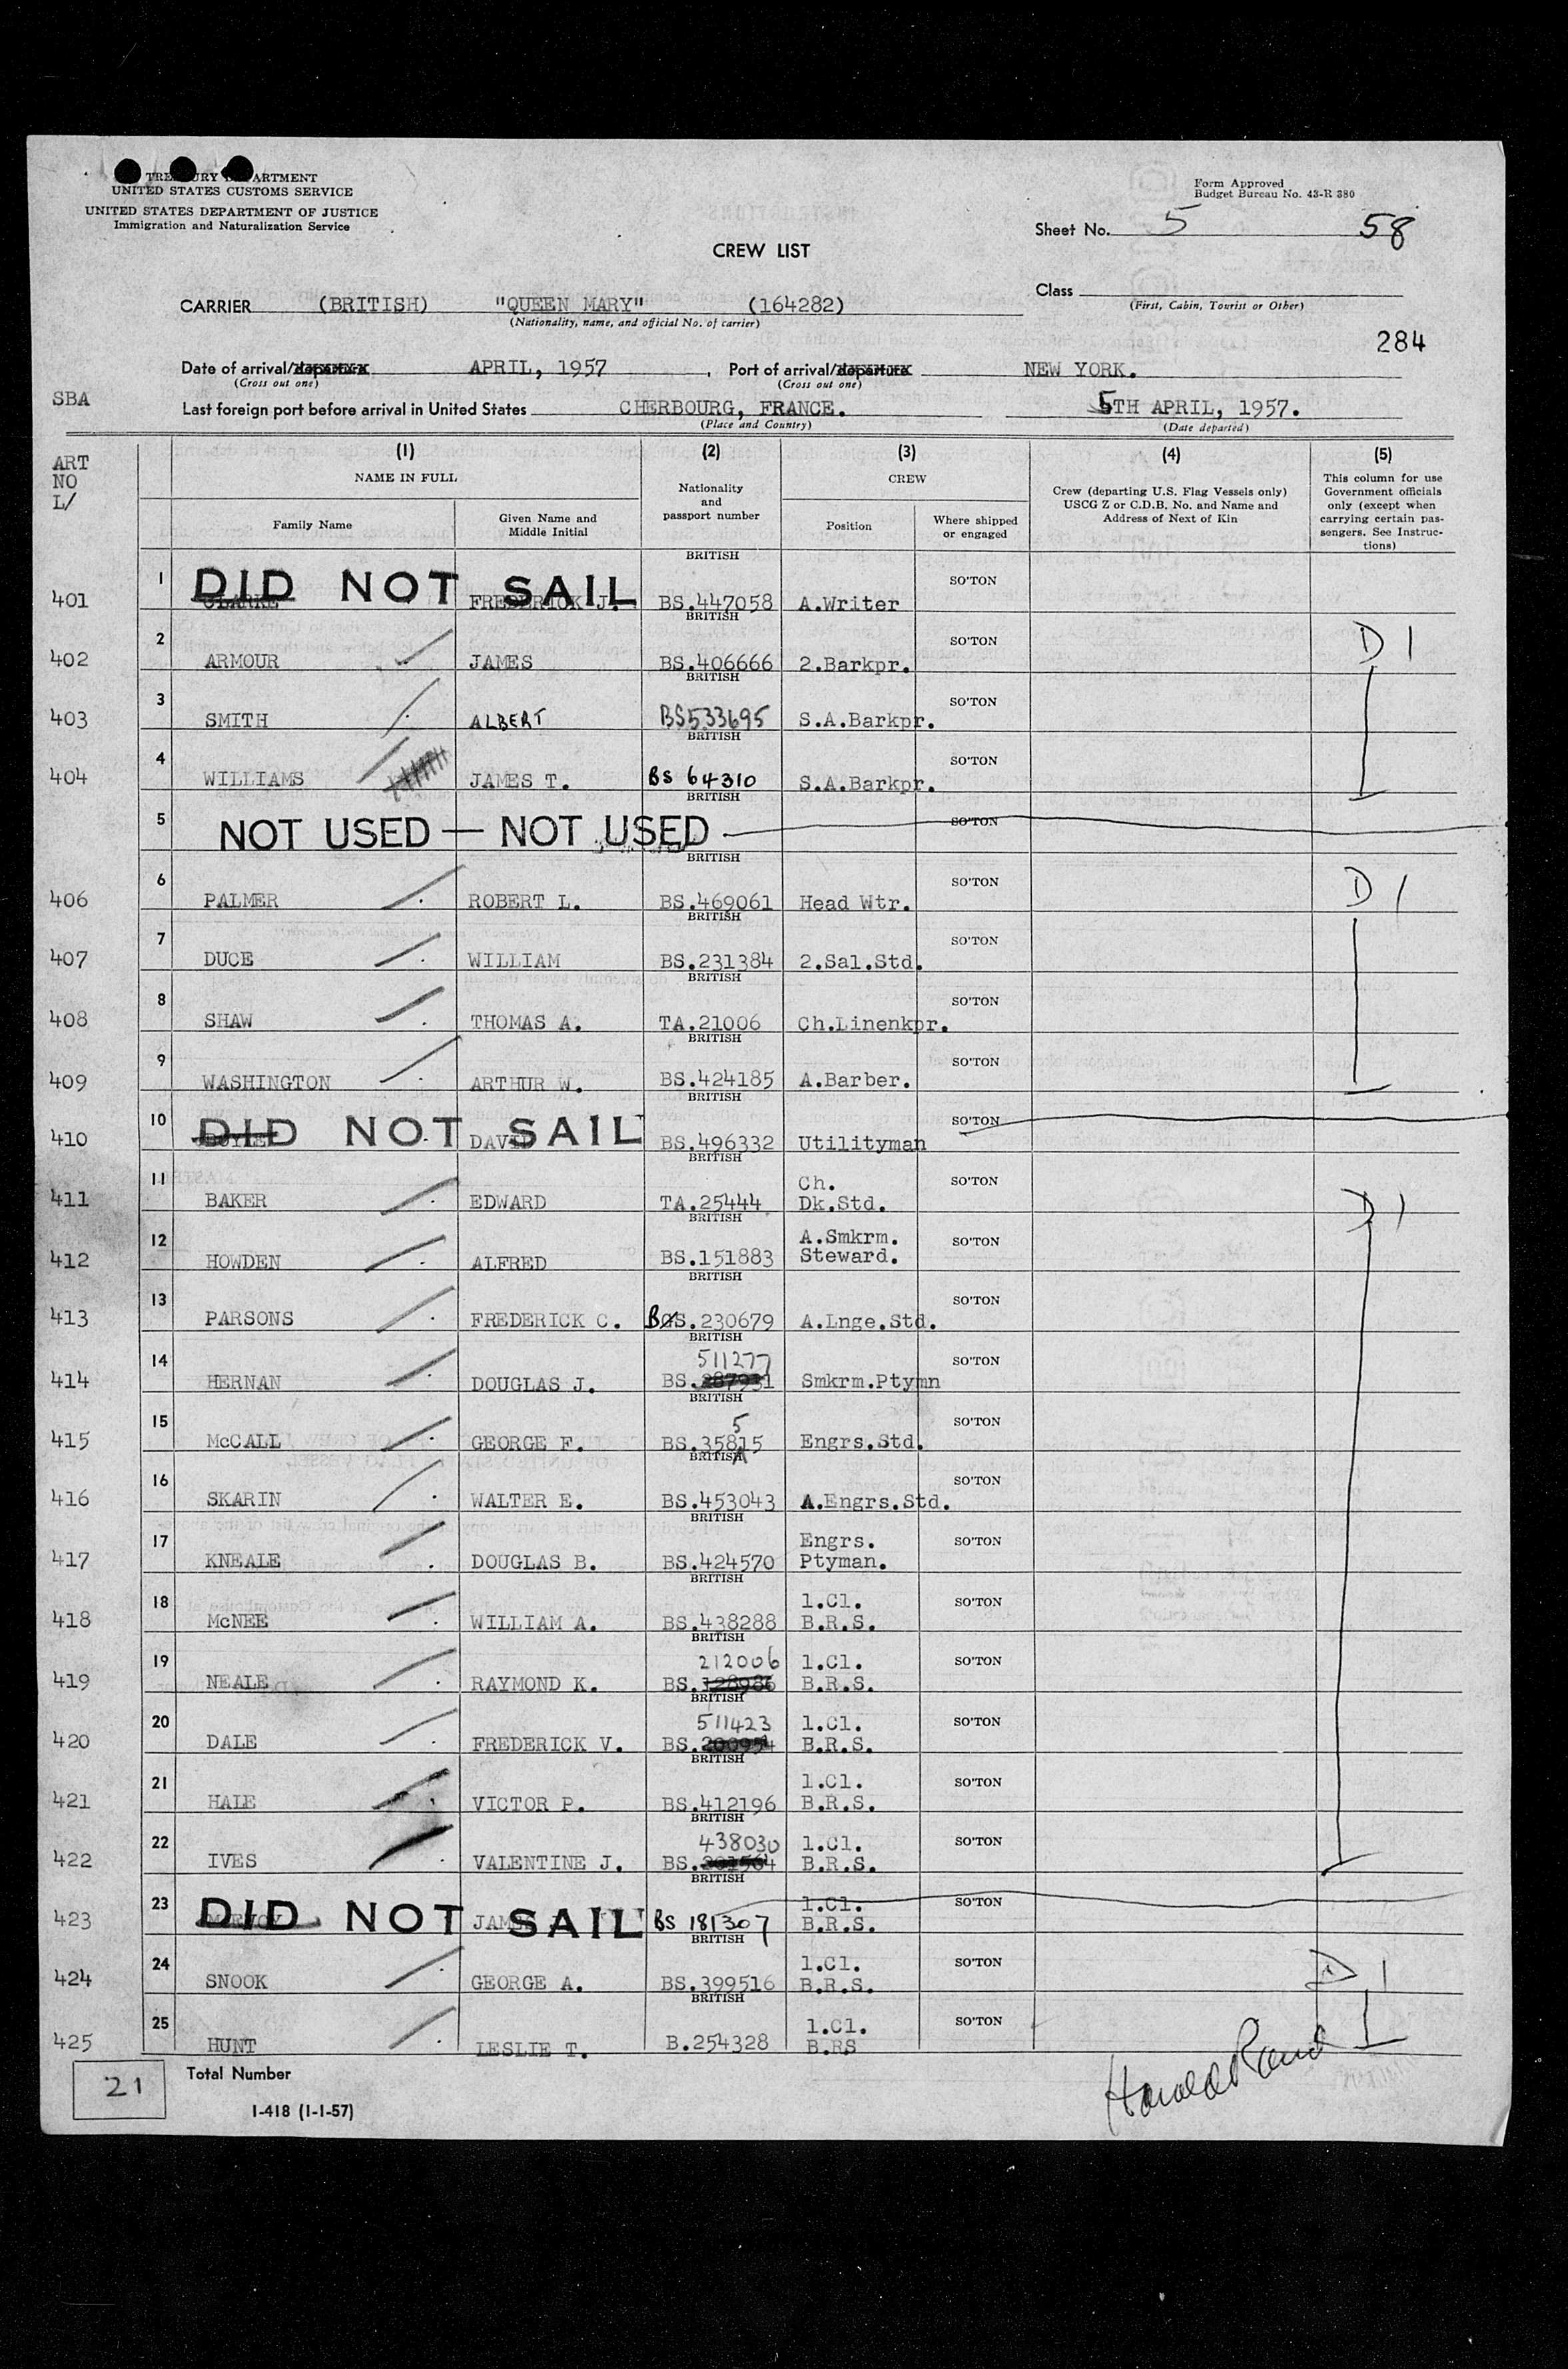 TREASURY DEPARTMENT
UNITED STATES CUSTOMS SERVICE
UNITED STATES DEPARTMENT OF JUSTICE
Immigration and Naturalization Service
Form Approved
Budget Bureau No. 43-R 380
Sheet No. 5 58
CREW LIST
Class
(First, Cabin, Tourist or Other)
CARRIER (BRITISH) "QUEEN MARY" (164282)
(Nationality, name, and official No. of carrier)
284
Date of arrival/departure APRIL, 1957 , Port of arrival/departure NEW YORK.
(Cross out one) (Cross out one)
SBA
Last foreign port before arrival in United States CHERBOURG, FRANCE. 5TH APRIL, 1957.
(Place and Country) (Date departed)
ART
NO
L/
(1) (2) (3) (4) (5)
NAME IN FULL
Family Name
Given Name and
Middle Initial
Nationality
and
passport number
CREW
Position
Where shipped
or engaged
Crew (departing U.S. Flag Vessels only)
USCG Z or C.D.B. No. and Name and
Address of Next of Kin
This column for use
Government officials
only (except when
carrying certain pas-
sengers. See Instruc-
tions)
BRITISH
401 1 DID NOT SAIL CLARKE FREDERICK J. BS.447058 A.Writer SO'TON
BRITISH
402 2 ARMOUR JAMES BS.406666 2.Barkpr. SO'TON D 1
BRITISH
403 3 SMITH ALBERT BS533695 S.A.Barkpr. SO'TON
BRITISH
404 4 WILLIAMS JAMES T. BS 64310 S.A.Barkpr. SO'TON
BRITISH
5 NOT USED — NOT USED SO'TON
BRITISH
406 6 PALMER ROBERT L. BS.469061 Head Wtr. SO'TON D 1
BRITISH
407 7 DUCE WILLIAM BS.231384 2.Sal.Std. SO'TON
BRITISH
408 8 SHAW THOMAS A. TA.21006 Ch.Linenkpr. SO'TON
BRITISH
409 9 WASHINGTON ARTHUR W. BS.424185 A.Barber. SO'TON
BRITISH
410 10 DID NOT SAIL DAVID BS.496332 Utilityman SO'TON
BRITISH
411 11 BAKER EDWARD TA.25444 Ch.
Dk.Std. SO'TON D 1
BRITISH
412 12 HOWDEN ALFRED BS.151883 A.Smkrm.
Steward. SO'TON
BRITISH
413 13 PARSONS FREDERICK C. BS.230679 A.Lnge.Std. SO'TON
BRITISH
511277
414 14 HERNAN DOUGLAS J. BS.287931 Smkrm.Ptymn SO'TON
BRITISH
5
415 15 McCALL GEORGE F. BS.35815 Engrs.Std. SO'TON
BRITISH
416 16 SKARIN WALTER E. BS.453043 A.Engrs.Std. SO'TON
BRITISH
417 17 KNEALE DOUGLAS B. BS.424570 Engrs.
Ptyman. SO'TON
BRITISH
418 18 McNEE WILLIAM A. BS.438288 1.Cl.
B.R.S. SO'TON
BRITISH
212006
419 19 NEALE RAYMOND K. BS.128986 1.Cl.
B.R.S. SO'TON
BRITISH
511423
420 20 DALE FREDERICK V. BS.200954 1.Cl.
B.R.S. SO'TON
BRITISH
421 21 HALE VICTOR P. BS.412196 1.Cl.
B.R.S. SO'TON
BRITISH
438030
422 22 IVES VALENTINE J. BS. 1.Cl.
B.R.S. SO'TON
BRITISH
423 23 DID NOT SAIL BS 181307 1.Cl.
B.R.S. SO'TON
BRITISH
424 24 SNOOK GEORGE A. BS.399516 1.Cl.
B.R.S. SO'TON D 1
BRITISH
425 25 HUNT LESLIE T. B.254328 1.Cl.
B.RS SO'TON
21 Total Number
I-418 (1-1-57)
Harold Rand